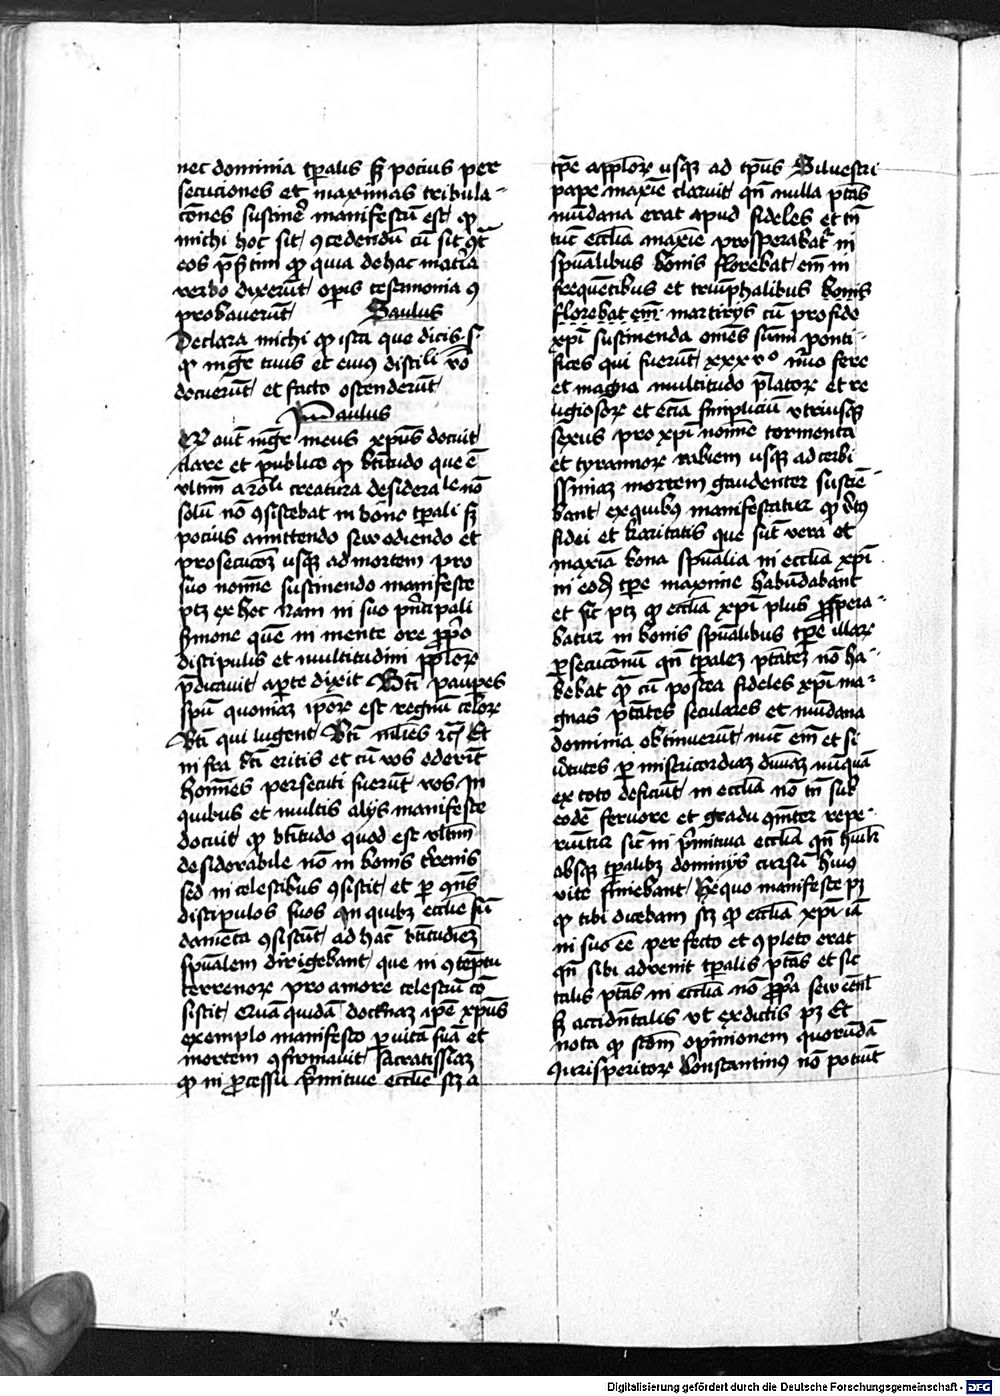 nec dominia tp̄alis sꝫ pocius per
secuciones et maximas tribula-
cōnes sustinē manifestū est ꝙ
michi hoc sit ꝯcedendū cū sit ꝯt̄
eos p̄s̄tim ꝙ quia de hac mat̄ia
verbo dixerūt opis testimonia ꝯ
probaverūt Saulus
Declara michi ꝙ ista que dicis s.
ꝙ mḡr tuus et eius discili v̄o
docuerūt et facto ostenderūt
Paulus
mḡr meus xp̄us docuit
clare et publice ꝙ btītudo que ē
vltīm creatura desiderale nō
solū nō ꝯsistebat in bono tp̄ali sꝫ
pocius amittendo sew odiendo et
prosecucōꝫ usqꝫ ad mortem pro
suo noīne sustinendo manifeste
ptꝫ ex hoc Nam in suo p̄ncipali
ẜmone quē in mente ore pp̄o
discipulis et multitudini pp̄loꝝ
p̄dicavit apte dixit Btī paupes
spū quoniaꝫ ipoꝝ est regnū celoꝝ
Btī qui lugent Btī mites rc̄ Et
infra btī eritis et cū vos oderīt
hoīnes persecuti fuerūt vos In
quibus et multis alijs manifeste
docuit ꝙ btītudo quod est vltīm
desiderabile nō in bonis t̄renis
sed in celestibus ꝯsistit et ꝑ ꝯn̄s
discipulos suos in quibꝫ ecclīe fū
damēta ꝯsistūt ad hāc btītudīeꝫ
spūalem dirigebant que in ꝯtēptu
terrenoꝝ pro amore celestiū cō
sistit Quā quidā doctnaꝫ ip̄e xp̄us
exemplo manifesto ꝑ vitā suā et
mortem ꝯfirmavit sacratissīaꝫ
ꝙ in ꝓcessu p̄mitive ecclīe scꝫ a
tp̄e app̄loꝝ usqꝫ ad tp̄us Silvestri
pape maxīe claruit qn̄ nulla ptās
mūdana erat apud fideles et tn̄
tūc ecclīa maxīe prosperabat̄ in
spūalibus bonis florebat em̄ in
frequētibus et triūphalibus bonis
florebat em̄ martirijs cū pro fide
xp̄i sustinenda om̄es sūmi ponti-
fices qui fuerūt xxxvº nu̅o fere
et magna multitudo p̄latoꝝ et re
ligiosoꝝ et eciā simpliciū vtriusqꝫ
sexus pro xp̄i noīne tormenta
et tyrannoꝝ rabiem usqꝫ ad cerbi
ssimaꝫ mortem gaudenter sustīe-
bant ex quibus manifestatur ꝙ v̄tꝯ
fidei et karitatis que sūt vera et
maxīa bona spūalia in ecclīa xp̄i
in eodꝫ tp̄e maxime habūdabant
et sic ptꝫ ꝙ ecclīa xp̄i plus ꝓspera-
batur in bonis spūalibus tp̄e illaꝝ
ꝑsecucōnū qn̄ tp̄aleꝫ ptāteꝫ nō ha-
bebat ꝙ cū postea fideles xp̄i ma-
gnas ptātes seculares et mūdana
dominia obtinuerūt nūc em̄ et si
v̄tutes ꝑ misericordiaꝫ divīaꝫ nūquā
ex toto deficiūt in ecclīa nō tn̄ sub
eodē fervore et gradu ꝯmiter repe-
riūtur sic̄ in p̄mitiva ecclīa qn̄
absqꝫ tp̄alibꝫ dominijs cursū huius
vite finiebant Ex quo manifeste pꝫ
ꝙ tibi dicebam scꝫ ꝙ ecclīa xp̄i iā
in suo ēē perfecto et ꝯpleto erat
qn̄ sibi advenit tp̄alis ptās et sic
talis ptās in ecclīa nō pp̄a sew
sꝫ accidn̄talis vt ex dictis pꝫ Et
nota ꝙ scdm̄ opinionem quorūdā
Iurisperitoꝝ Constantinꝯ nō potuit
Digitalisierung gefördert durch die Deutsche Forschungsgemeinschaft - DFG